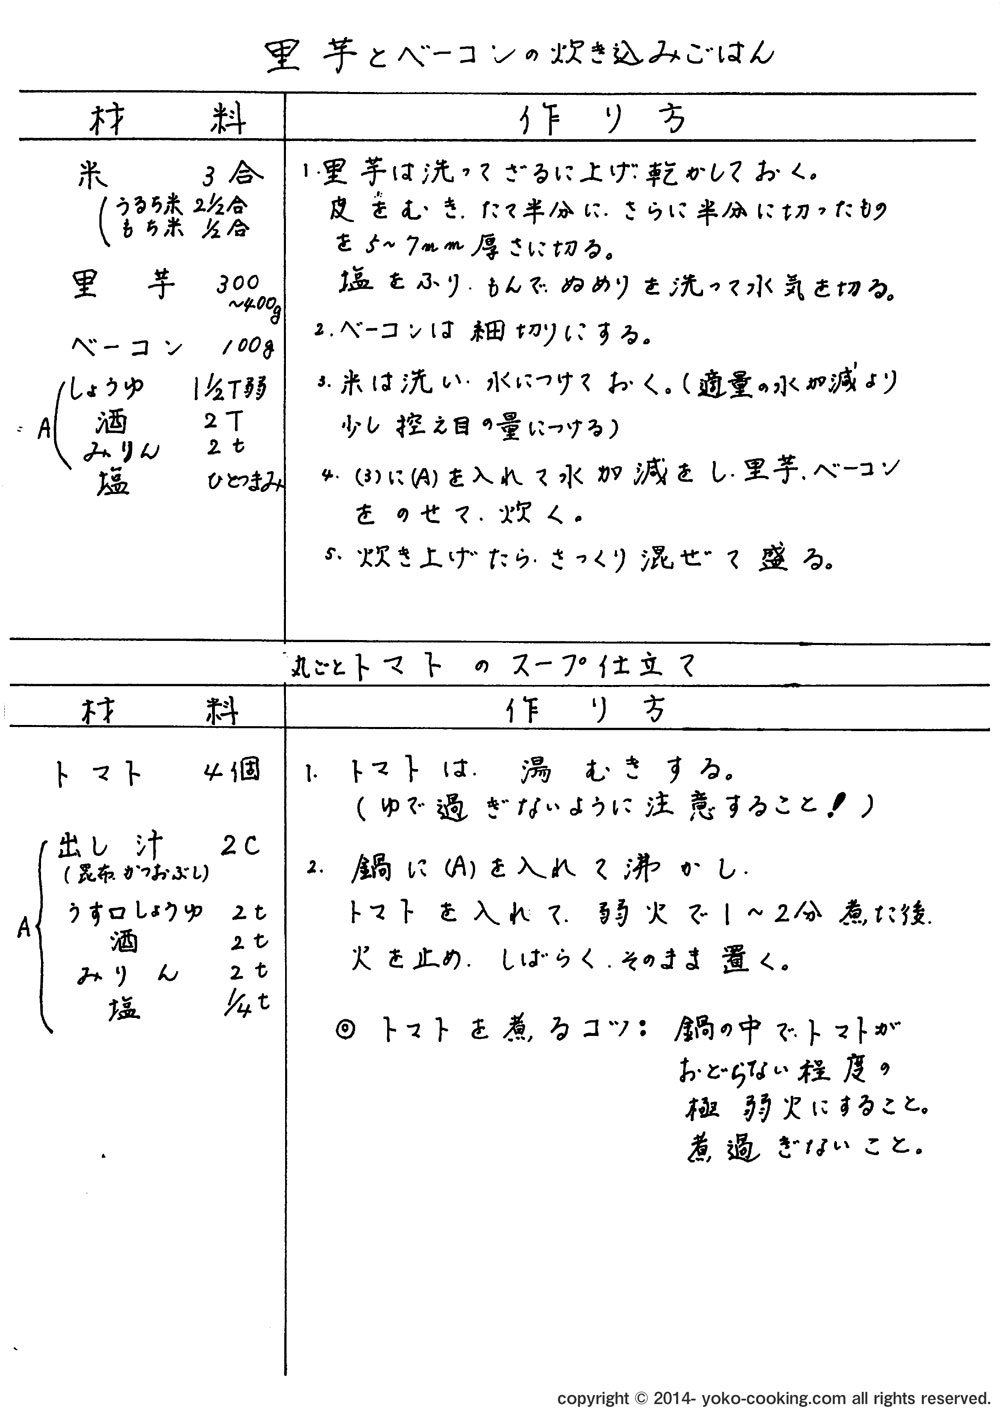 里芋とベーコンの炊き込みごはん
材料
作り方
米 3合
(うるち米 2 1/2合
もち米 1/2合
里芋 300
~400g
ベーコン 100g
A
しょうゆ 1 1/2T弱
酒 2T
みりん 2t
塩 ひとつまみ
1.里芋は洗ってざるに上げ、乾かしておく。
皮をむき、たて半分に、さらに半分に切ったもの
を5~7mm厚さに切る。
塩をふり、もんで、ぬめりを洗って水気を切る。
2.ベーコンは細切りにする。
3.米は洗い、水につけておく。(適量の水加減より
少し控え目の量につける)
4.(3)に(A)を入れて水加減をし、里芋、ベーコン
をのせて、炊く。
5.炊き上げたら、さっくり混ぜて盛る。
丸ごとトマトのスープ仕立て
材料
作り方
トマト 4個
A
出し汁 2C
(昆布、かつおぶし)
うす口しょうゆ 2t
酒 2t
みりん 2t
塩 1/4t
1.トマトは、湯むきする。
(ゆで過ぎないように注意すること!)
2.鍋に(A)を入れて沸かし、
トマトを入れて、弱火で1~2分煮た後、
火を止め、しばらく、そのまま置く。
◎トマトを煮るコツ:鍋の中で、トマトが
おどらない程度の
極弱火にすること。
煮過ぎないこと。
copyright © 2014- yoko-cooking.com all rights reserved.